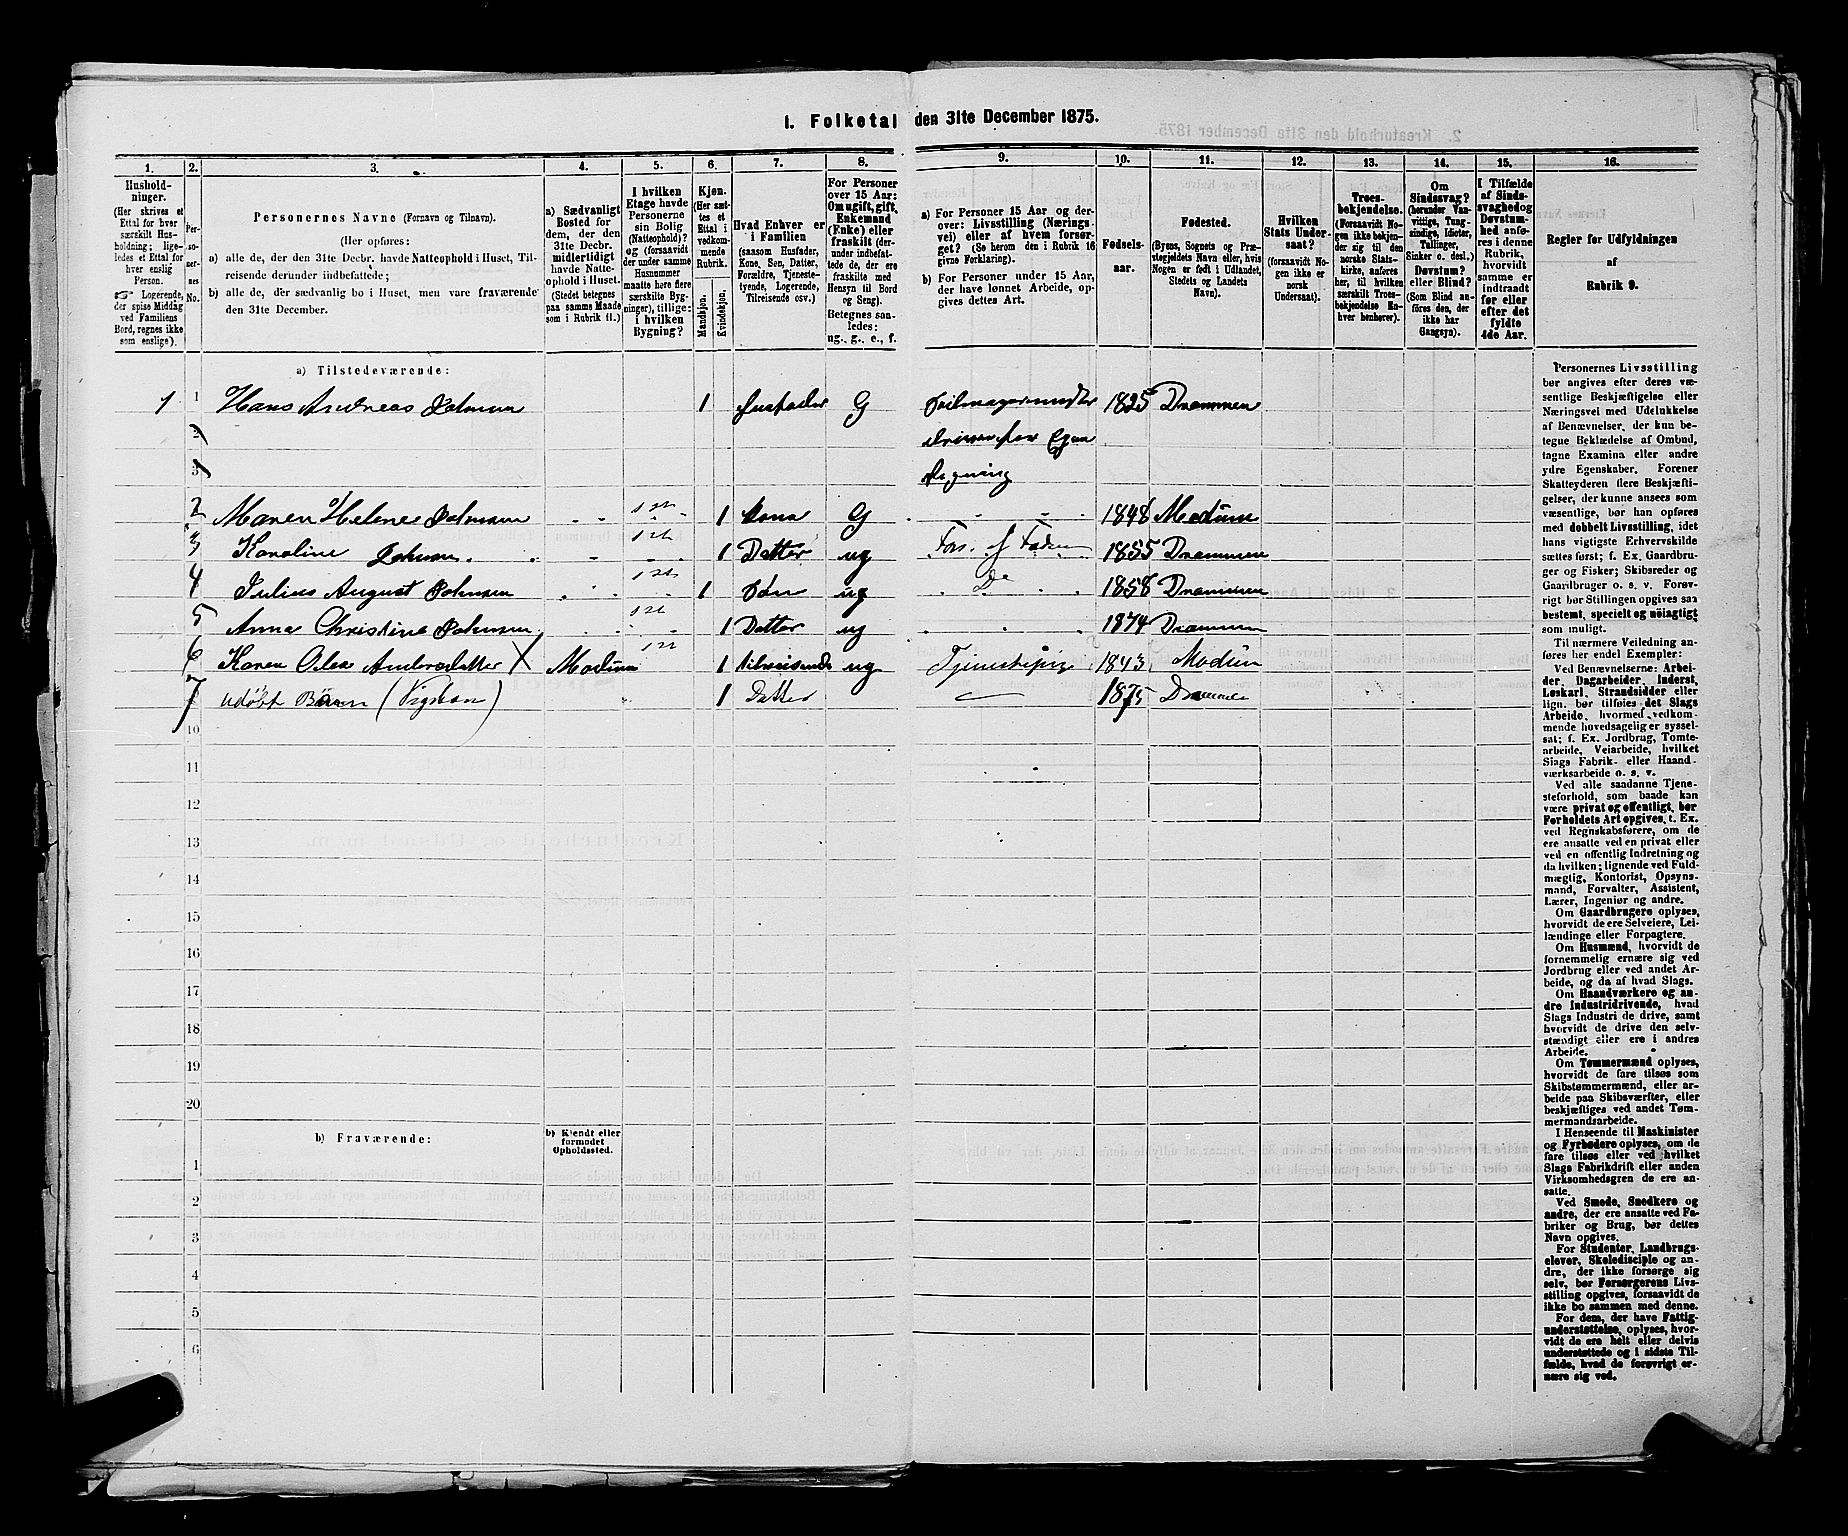 1. Folketal den 31te December 1875.
1. 2. 3. 4. 5. 6. 7. 8. 9. 10. 11. 12. 13. 14. 15. 16.
Hushold-
ninger.
(Her skrives et
Ettal for hver
særskilt Hus-
holdning; lige-
ledes et Ettal for
hver enslig
Person.
☞ Logerende,
der spise Middag
ved Familiens
Bord, regnes ikke
som enslige).
Per-
so-
ner-
nes
No.
Personernes Navne (Fornavn og Tilnavn).
(Her opføres:
a) alle de, der den 31te Decbr. havde Natteophold i Huset, Til-
reisende derunder indbefattede;
b) alle de, der sædvanlig bo i Huset, men vare fraværende
den 31te December.
a) Sædvanligt
Bosted for
dem, der den
31te Decbr.
midlertidigt
havde Natte-
ophold i Huset.
(Stedet betegnes
paa samme Maade
som i Rubrik 11.)
I hvilken
Etage havde
Personerne
sin Bolig
(Natteophold)?
og (forsaavidt
der under samme
Husnummer
maatte høre flere
særskilte Byg-
ninger), tillige:
i hvilken
Bygning?
Kjøn.
(Her sæt-
tes et
Ettal i
vedkom-
mende
Rubrik.
Mandskjøn.
Kvindekjøn.
Hvad Enhver er
i Familien
(saasom Husfader,
Kone, Søn, Datter,
Forældre, Tjeneste-
tyende, Logerende,
Tilreisende osv.)
For Personer
over 15 Aar:
Om ugift, gift,
Enkemand
(Enke) eller
fraskilt (der-
under indbefat-
tede de, der ere
fraskilte med
Hensyn til Bord
og Seng).
Betegnes saa-
ledes:
ug., g., e., f.
a) For Personer 15 Aar og der-
over: Livsstilling (Nærings-
vei) eller af hvem forsør-
get? (Se herom den i Rubrik 16
givne Forklaring).
b) For Personer under 15 Aar,
der have lønnet Arbeide, op-
gives dettes Art.
Fødsels-
aar.
Fødested.
(Byens, Sognets og Præ-
stegjeldets Navn eller, hvis
Nogen er født i Udlandet,
Stedets og Landets
Navn).
Hvilken
Stats Under-
saat?
(forsaavidt No-
gen ikke er
norsk
Undersaat).
Troes-
bekjendelse.
(Forsaavidt No-
gen ikke bekjen-
der sig til den
norske Stats-
kirke, anføres
her, til hvilken
særskilt Troes-
bekjendelse En-
hver henhører).
Om
Sindssvag?
(herunder Van-
vittige, Tung-
sindige, Idioter,
Tullinger,
Sinker o. desl.)
Døvstum?
eller Blind?
(Som Blind an-
føres den, der
ikke har
Gangsyn).
I Tilfælde
af Sinds-
svaghed og
Døvstum-
hed anfø-
res i denne
Rubrik,
hvorvidt
samme er
indtraadt
før eller
efter det
fyldte
4de Aar.
Regler før Udfyldningen
af
Rubrik 9.
a) Tilstedeværende:
1 1 Hans Andreas Johnsen 1 Husfader G Seilmagermester 1825 Drammen
2 driver for Egen
3 Regning
2 Maren Helene Johnsen 1 st 1 Kone G 1848 Modum
3 Karoline Johnsen 1 st 1 Datter ug Fors. af Faderen 1855 Drammen
4 Julius August Johnsen 1 st 1 Søn ug Do 1858 Drammen
5 Anna Christine Johnsen 1 st 1 Datter ug 1874 Drammen
6 Karen Olea Andersdatter X Modum 1 st 1 tilreisende ug Tjenestepige 1843 Modum
7 udøbt Barn (Pigebarn) 1 Datter 1875 Drammen
10
11
12
13
14
15
16
17
18
19
20
b) Fraværende:
b) Kjendt eller
formodet
Opholdssted.
1
2
3
4
5
6
Personernes Livsstilling
bør angives efter deres væ-
sentlige Beskjæftigelse eller
Næringsvei med Udelukkelse
af Benævnelser, der kun be-
tegne Beklædelse af Ombud,
tagne Examina eller andre
ydre Egenskaber. Forener
Skatteyderen flere Beskjæfti-
gelser, der kunne ansees som
væsentlige, bør han opføres
med dobbelt Livsstilling, idet
hans vigtigste Erhvervskilde
sættes først; f. Ex. Gaardbru-
ger og Fisker; Skibsreder og
Gaardbruger o. s. v. Forøv-
rigt bør Stillingen opgives saa
bestemt, specielt og nöiagtigt
som muligt.
Til nærmere Veiledning an-
føres her endel Exempler:
Ved Benævnelserne: Arbei-
der, Dagarbeider, Inderst,
Løskarl, Strandsidder eller
lign. bør tilføies det Slags
Arbeide, hvormed vedkom-
mende hovedsagelig er syssel-
sat; f. Ex. Jordbrug, Tomte-
arbeide, Veiarbeide, hvilket
Slags Fabrik- eller Haand-
værksarbeide o. s. v.
Ved alle saadanne Tjene-
steforhold, som baade kan
være privat og offentligt, bør
Forholdets Art opgives, t. Ex.
ved Regnskabsførere, om de
ere ansatte ved en privat eller
ved en offentlig Indretning og
da hvilken; lignende ved Fuld-
mægtig, Kontorist, Opsyns-
mand, Forvalter, Assistent,
Lærer, Ingeniør og andre.
Om Gaardbrugere oplyses,
hvorvidt de ere Selveiere, Lei-
lændinge eller Forpagtere.
Om Husmænd, hvorvidt de
fornemmelig ernære sig ved
Jordbrug eller ved andet Ar-
beide, og da af hvad Slags.
Om Haandværkere og an-
dre Industridrivende, hvad
Slags Industri de drive, samt
hvorvidt de drive den selv-
stændigt eller ere i andres
Arbeide.
Om Tømmermænd oplyses,
hvorvidt de fare tilsøs som
Skibstømmermænd, eller ar-
beide paa Skibsværfter, eller
beskjæftiges ved andet Tøm-
mermandsarbeide.
I Henseende til Maskinister
og Fyrbødere oplyses, om de
fare tilsøs eller ved hvilket
Slags Fabrikdrift eller anden
Virksomhedsgren de ere an-
satte.
Ved Smede, Snedkere og
andre, der ere ansatte ved Fa-
briker og Brug, bør dettes
Navn opgives.
For Studenter, Landbrugs-
elever, Skoledisciple og an-
dre, der ikke forsørge sig
selv, bør Forsørgerens Livs-
stilling opgives, forsaavidt de
ikke bo sammen med denne.
For dem, der have Fattig-
understøttelse, oplyses, hvor-
vidt de ere helt eller delvis
understøttede og i sidste Til-
fælde, hvad de forøvrigt er-
nære sig ved.